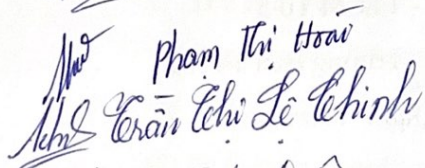 Phạm Thị Hoài
Trần Thị Lệ Chinh